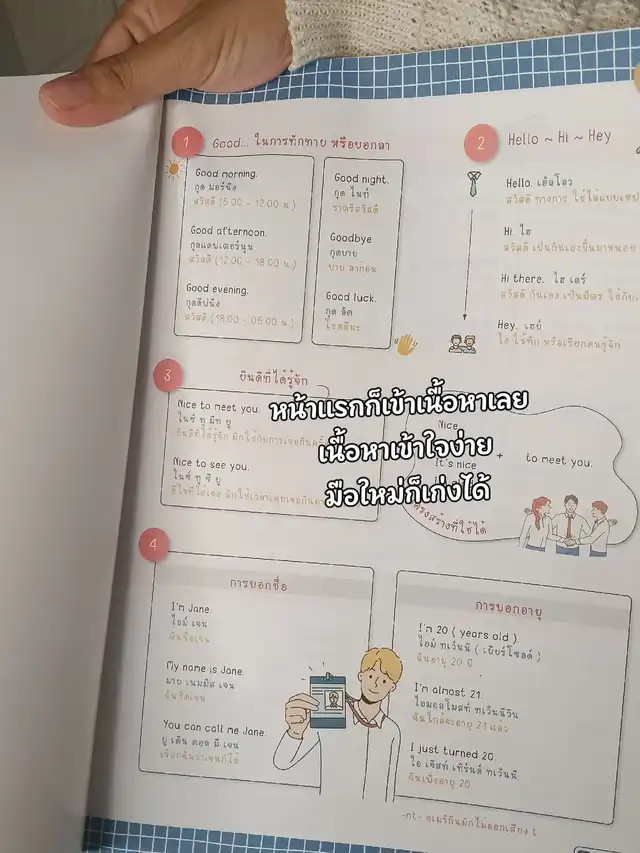 1
Good... ในการทักทาย หรือบอกลา
Good morning.
กุด มอร์นิง
สวัสดี (5.00 - 12.00 น.)
Good afternoon.
กุดแอฟเตอร์นูน
สวัสดี (12.00 - 18.00 น.)
Good evening.
กุดอีฟนิง
สวัสดี (18.00 - 05.00 น.)
Good night.
กุด ไนท์
ราตรีสวัสดิ์
Goodbye.
กุดบาย
บาย ลาก่อน
Good luck.
กุด ลัค
โชคดีนะ
2
Hello ~ Hi ~ Hey
Hello. เฮ็ลโลว
สวัสดี ทางการ ใช้ได้แบบ
Hi. ไฮ
สวัสดี เป็นกันเองขึ้นมาหน่อย
Hi there. ไฮ แดร์
สวัสดี กันเอง เป็นมิตร ใช้กับ
Hey. เฮย์
ไง ใช้ทัก หรือเรียกคนรู้จัก
3
ยินดีที่ได้รู้จัก
Nice to meet you.
ไนซ์ ทู มีท ยู
ยินดีที่ได้รู้จัก มักใช้กับการเจอกันครั้ง
Nice to see you.
ไนซ์ ทู ซี ยู
ดีใจที่ได้เจอ มักใช้เวลาเคยเจอกัน
Nice
It's nice
+ to meet you.
โครงสร้างที่ใช้ได้
หน้าแรกก็เข้าเนื้อหาเลย
เนื้อหาเข้าใจง่าย
มือใหม่ก็เก่งได้
4
การบอกชื่อ
I'm Jane.
ไอม์ เจน
ฉันชื่อเจน
My name is Jane.
มาย เนมมิส เจน
ฉันชื่อเจน
You can call me Jane.
ยู เคิน คอล มี เจน
เรียกฉันว่าเจนก็ได้
การบอกอายุ
I'm 20 ( years old ).
ไอม์ ทเว็นนี ( เยียร์โซลด์ )
ฉันอายุ 20 ปี
I'm almost 21.
ไอมอลโมสท์ ทเว็นนีวัน
ฉันใกล้จะอายุ 21 แล้ว
I just turned 20.
ไอ เจิสท์ เทิร์นด์ ทเว็นนี
ฉันเพิ่งอายุ 20
-nt- อเมริกันมักไม่ออกเสียง t